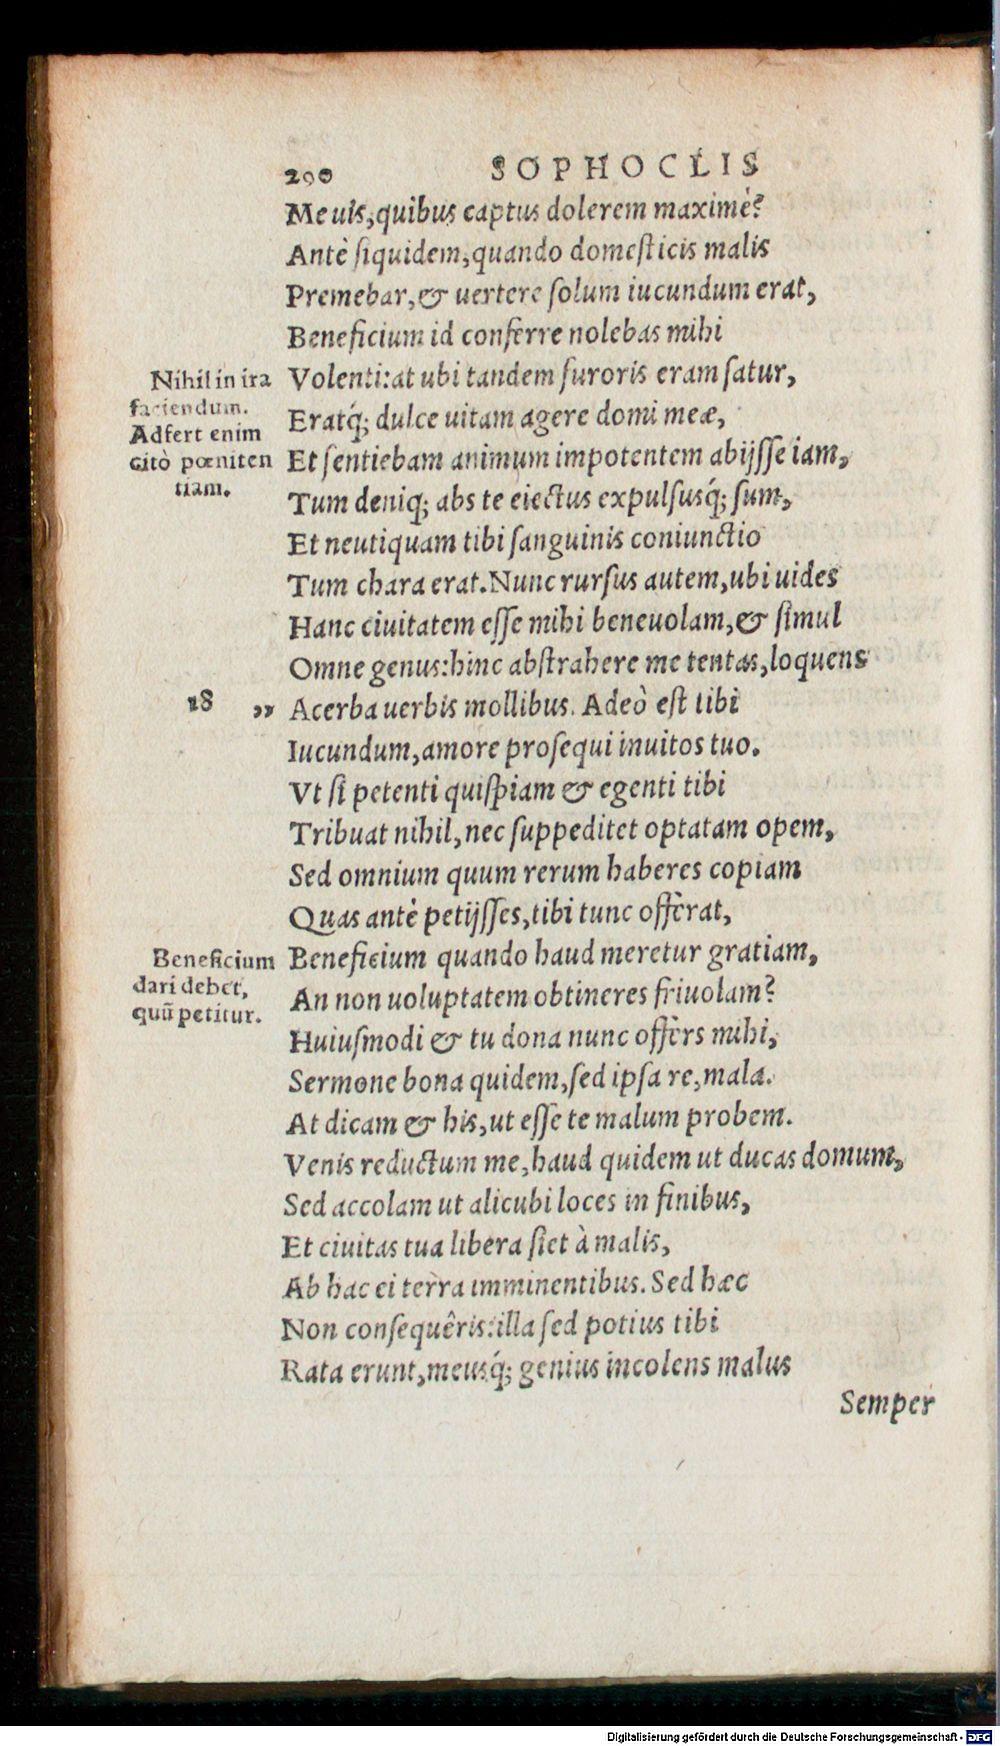 290 SOPHOCLIS
Me uis, quibus captus dolerem maximè?
Antè siquidem, quando domesticis malis
Premebar, & uertere solum iucundum erat,
Beneficium id conferre nolebas mihi
Volenti: at ubi tandem furoris eram satur,
Eratq́; dulce uitam agere domi meæ,
Et sentiebam animum impotentem abijsse iam,
Tum deniq; abs te eiectus expulsusq́; sum,
Et neutiquam tibi sanguinis coniunctio
Tum chara erat. Nunc rursus autem, ubi uides
Hanc ciuitatem esse mihi beneuolam, & simul
Omne genus: hinc abstrahere me tentas, loquens
Acerba uerbis mollibus. Adeò est tibi
Iucundum, amore prosequi inuitos tuo.
Vt si petenti quispiam & egenti tibi
Tribuat nihil, nec suppeditet optatam opem,
Sed omnium quum rerum haberes copiam
Quas antè petijsses, tibi tunc offerat,
Beneficium quando haud meretur gratiam,
An non uoluptatem obtineres friuolam?
Huiusmodi & tu dona nunc offers mihi,
Sermone bona quidem, sed ipsa re, mala.
At dicam & his, ut esse te malum probem.
Venis reductum me, haud quidem ut ducas domum,
Sed accolam ut alicubi loces in finibus,
Et ciuitas tua libera siet à malis,
Ab hac ei terra imminentibus. Sed hæc
Non consequêris: illa sed potius tibi
Rata erunt, meusq́; genius incolens malus
Semper
Nihil in ira
faciendum.
Adfert enim
citò pœniten
tiam.
18 „
Beneficium
dari debet,
quũ petitur.
Digitalisierung gefördert durch die Deutsche Forschungsgemeinschaft - DFG